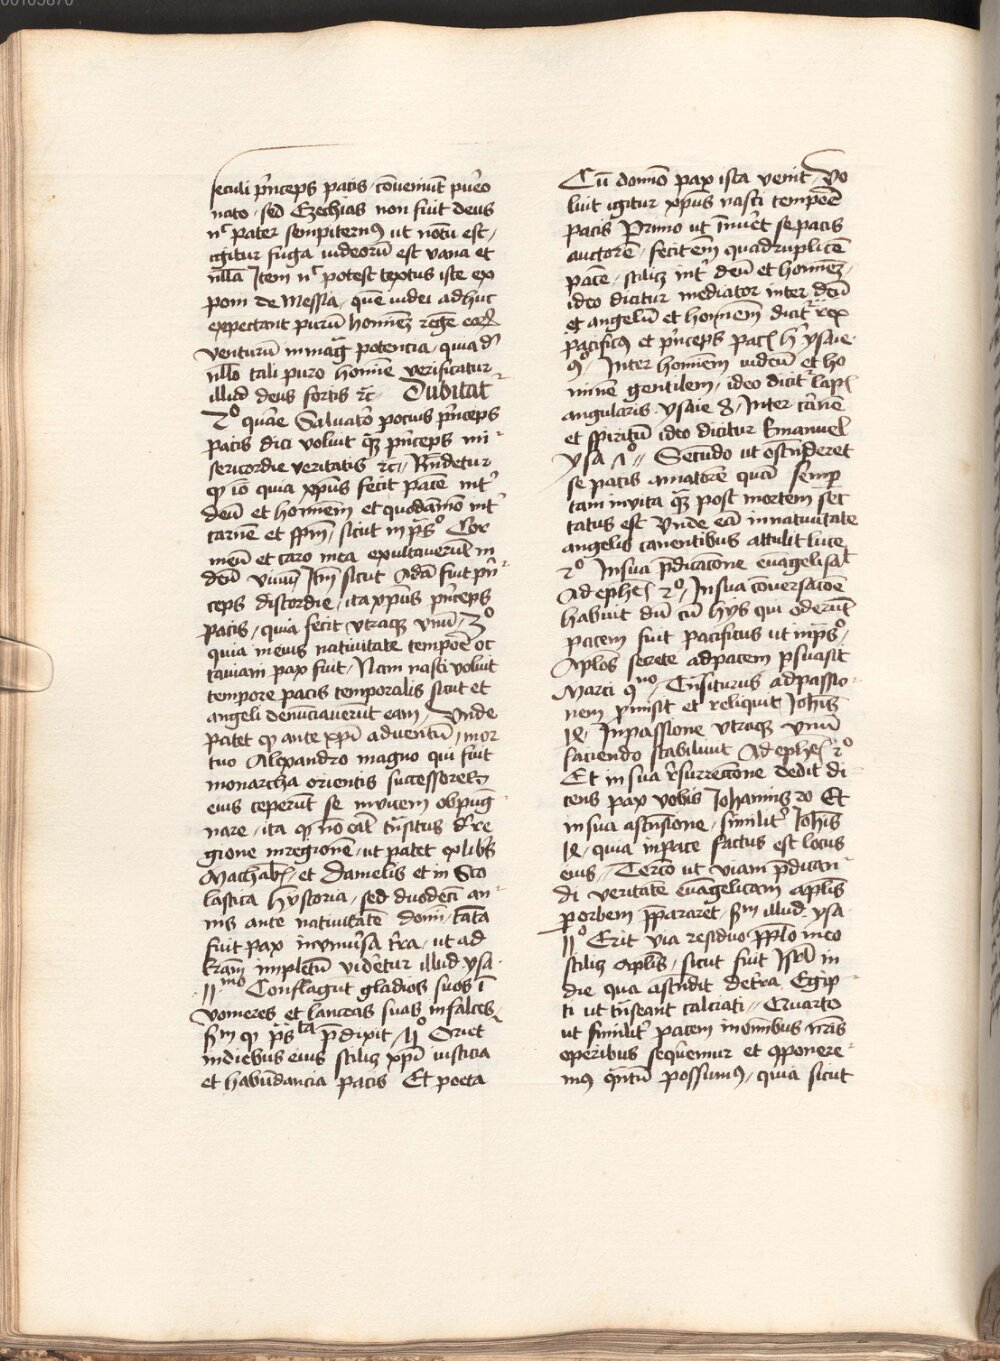 seculi p̄nceps pacis / cōveniūt pu̓eo
nato / sed Ezechias non fuit deus
nͨ pater sempiternꝰ ut notū est /
igitur fuga iudeorū est vana et
nlla Item nͨ potest textus iste ex
poni de Messia / quē iudei adhuc
expectant purū hominēz regē eoꝝ
venturū in mag̃ potencia / quia d̓
nllo tali puro homine verificatur
illud deus fortis ⁊c̃ Dubitat͛
2ͦ quare Salvator pocius p̄nceps
pacis dici voluit q̃ȝ p̄nceps mi
sericordie veritatis ⁊c̃ // Rn̄detur
ꝙ iō quia xp̄us fecit pacē int͛
deū et hominem et quodāmō int͛
carnē et sp̄m / sicut in p̄sͦ Cor
meū et caro mea exultaverūt in
deū vivū Itm̄ sicut Adā fuit p̄n
ceps discordie / ita xp̄us p̄nceps
pacis / quia fecit utraqꝫ unū / 3ͦ
quia in eius nativitate tempoꝛ̄ oc
taviani pax fuit / Nam nasci voluit
tempore pacis temporalis sicut et
angeli denūciaverūt eam / Unde
patet ꝙ ante xp̄i adventū / mor
tuo Alexandro magno qui fuit
monarcha orientis successores
eius ceperūt se invicem obpug̃
nare / ita ꝙ nō eāt t̃nsitus d̓ re
gione in regionē / ut patet ex libͥs
Machab̄ / et Danielis et in Sco
lastica hystoria / sed duodecī an
nis ante nativitatē domī / tāta
fuit pax in univ̓sa t̓ra / ut ad
l̄ram impletū videretur illud ysa
11ᵐᵒ Conflagūt gladios suos ī
vomeres et lanceas suas in falces /
sm̄ ꝙ p̄sˡᵗᵃ p̄dixit / 11ͦ Oriet͛
in diebus eius scilicꝫ xp̄i iusticia
et habūdancia pacis Et poeta
Cū domīo pax ista venit / Vo
luit igitur xp̄us nasci tempoꝛ̄
pacis Primo ut īnuēt se pacis
auctorē / fecit em̄ quadruplicē
pacē / scilicꝫ int͛ deū et hominēȝ /
ideo dicitur mediator inter deū
et angelū et hominēm dicit͛ rex
pacificꝰ et p̄nceps pacis hͬ ysaie
9ͦ / Inter hominem iudeū et ho
minē gentilem / ideo dicit͛ lapis
angularis ysaie 8 / Inter carnē
et spiritū ideo dicitur Emanuel
ysa 7ͦ // Secūdo ut ostēnderet
se pacis amatorē quā semp̄
tam in vita q̃ȝ post mortem sec
tatus est Unde eciā in nativitate
angelis canentibus attulit luce
2ͦ / In sua p̄dicacione evangelisat͛
Ad ephes̄ 2ͦ / In sua cōversacōe
habuit dū cū hys qui oderūt
pacem fuit pacificus ut in p̄sͦ /
Aplōs secrete ad pacem p̄suasit
Marci 9ⁿᵒ / T̃nsiturus ad passio
nem p̄misit et reliquit Johīs
14 / In passione utraqꝫ unū
faciendo stabilivit Ad ephes̄ 2ͦ
Et in sua r̄surrectione dedit di
cens pax vobis Johannis 20 Et
in sua ascensione / similit͛ Johīs
14 / quia in pace factus est locus
eius / Tercō ut viam p̄dican
di veritatē evāngelicam aplīs
p̱ orbem p̄pararet / sm̄ illud ysa
11ͦ Erit via residuo pp̄lo meo
scilicꝫ Aplīs / sicut fuit Isrl̄ in
die qua ascendit de t̓ra Egip
ti ut t̃nseant calciati // Quarto
ut similit͛ pacem in omībus nr̄is
operibus sequeremur et opponere
mꝰ q̃ntū possumꝰ / quia sicut